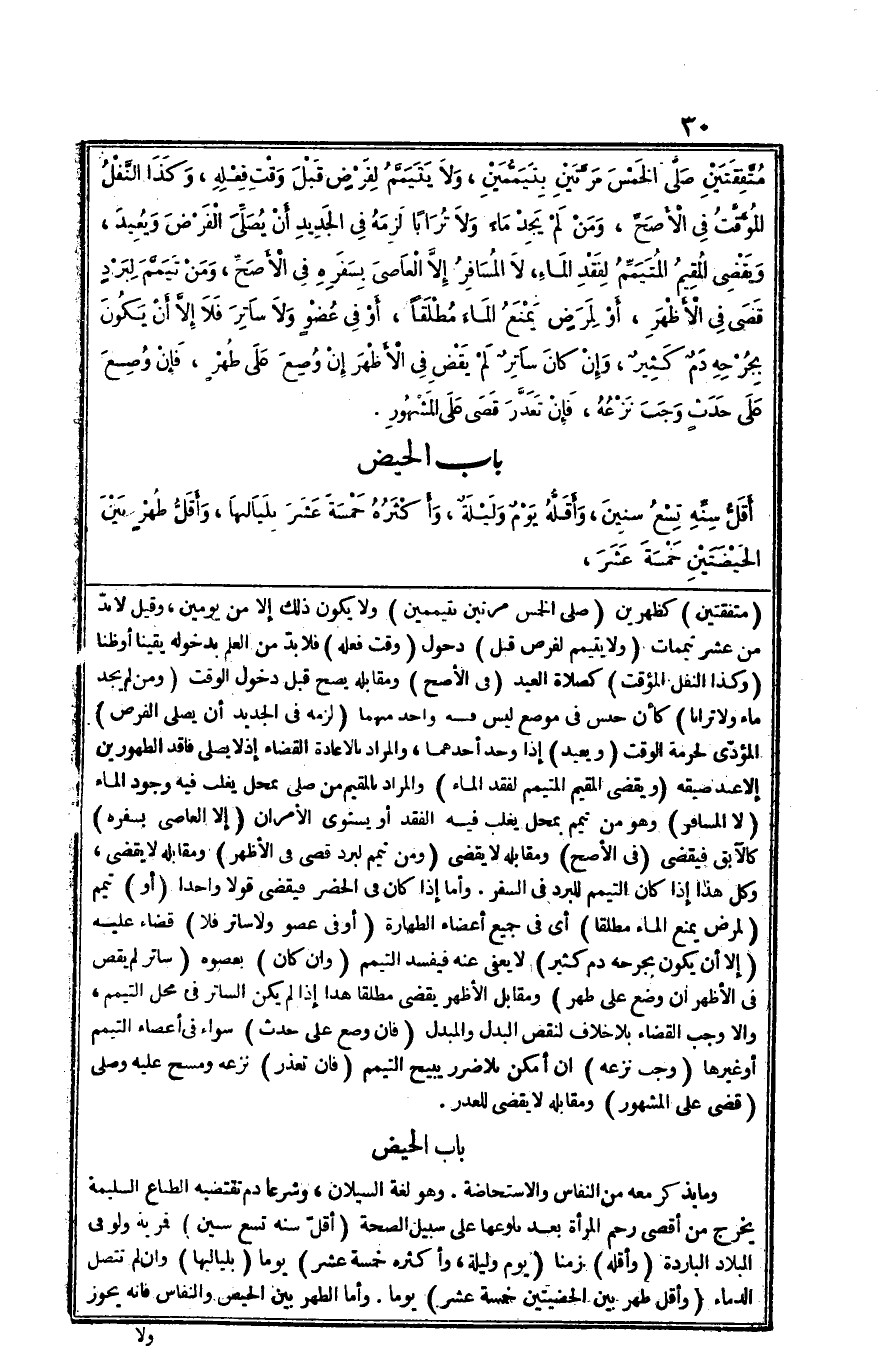 ٣٠
مُتَّفِقَتَيْنِ صَلَّى الْخَمْسَ مَرَّتَيْنِ بِتَيَمُّمَيْنِ ، وَلاَ يَتَيَمَّمُ لِفَرْضٍ قَبْلَ وَقْتِ فِعْلِهِ ، وَكَذَا النَّفْلُ
المُؤَقَّتُ فِى الْأَصَحِّ ، وَمَنْ لَمْ يَجِدْ مَاءً وَلاَ تُرَابًا لَزِمَهُ فِى الجَدِيدِ أَنْ يُصَلِّىَ الْفَرْضَ وَيُعِيدَ ،
وَيَقْضِى الْمُقِيمُ الْمُتَيَمِّمُ لِفَقْدِ المَاءِ، لاَ المُسَافِرُ إِلاَّ الْعَاصِىَ بِسَفَرِهِ فِى الْأَصَحِّ ، وَمَنْ تَيَمَّمَ لِبَرْدٍ
قَضَى فِى الْأَظْهَرِ ، أَوْ لِمَرَضٍ يَمْنَعُ المَاءَ مُطْلَقًا ، أَوْ فِى عُضْوٍ وَلاَ سَاتِرَ فَلاَ إِلاَّ أَنْ يَكُونَ
بِجُرْحِهِ دَمٌ كَثِيرٌ ، وَإِنْ كَانَ سَاتِرٌ لَمْ يَقْضِ فِى الْأَظْهَرِ إِنْ وُضِعَ عَلَى طُهْرٍ ، فَإِنْ وُضِعَ
عَلَى حَدَثٍ وَجَبَ نَزْعُهُ ، فَإِنْ تَعَذَّرَ قَضَى عَلَى المَشْهُورِ .
باب الحيض
أَقَلُّ سِنِّهِ تِسْعُ سنِينَ ، وَأَقَلُّهُ يَوْمٌ وَلَيْلَةٌ ، وَأَكْثَرُهُ خَمْسَةَ عَشَرَ بِلَيَالِيهَا ، وَأَقَلُّ طُهْرٍ بَيْنَ
الحَيْضَتَيْنِ خَمْسَةَ عَشَرَ ،
( متفقتين ) كظهرين ( صلى الخمس مرتين بتيممين ) ولا يكون ذلك إلا من يومين ، وقيل لا بدّ
من عشر تيممات ( ولا يتيمم لفرض قبل ) دخول ( وقت فعله ) فلا بدّ من العلم بدخوله يقينا أو ظنا
( وكذا النفل المؤقت ) كصلاة العيد ( فى الأصح ) ومقابله يصح قبل دخول الوقت ( ومن لم يجد
ماء ولا ترابا ) كأن حبس فى موضع ليس فيه واحد منهما ( لزمه فى الجديد أن يصلى الفرض )
المؤدّى لحرمة الوقت ( ويعيد ) إذا وجد أحدهما ، والمراد بالاعادة القضاء إذ لا يصلى فاقد الطهورين
إلا عند ضيقه ( ويقضى المقيم المتيمم لفقد الماء ) والمراد بالمقيم من صلى بمحل يغلب فيه وجود الماء
( لا المسافر ) وهو من تيمم بمحل يغلب فيه الفقد أو يستوى الأمران ( إلا العاصى بسفره )
كالآبق فيقضى ( فى الأصح ) ومقابله لا يقضى ( ومن تيمم لبرد قضى فى الأظهر ) ومقابله لا يقضى ،
وكل هذا إذا كان التيمم للبرد فى السفر . وأما إذا كان فى الحضر فيقضى قولا واحدا ( أو ) تيمم
( لمرض يمنع الماء مطلقا ) أى فى جميع أعضاء الطهارة ( أو فى عضو ولا ساتر فلا ) قضاء عليه
( إلا أن يكون بجرحه دم كثير ) لا يعفى عنه فيفسد التيمم ( وان كان ) بعضوه ( ساتر لم يقض
فى الأظهر ان وضع على طهر ) ومقابل الأظهر يقضى مطلقا هذا إذا لم يكن الساتر فى محل التيمم ،
والا وجب القضاء بلا خلاف لنقص البدل والمبدل ( فان وضع على حدث ) سواء فى أعضاء التيمم
أو غيرها ( وجب نزعه ) ان أمكن بلا ضرر يبيح التيمم ( فان تعذر ) نزعه ومسح عليه وصلى
( قضى على المشهور ) ومقابله لا يقضى للعذر .
باب الحيض
وما يذكر معه من النفاس والاستحاضة . وهو لغة السيلان ، وشرعا دم تقتضيه الطباع السليمة
يخرج من أقصى رحم المرأة بعد بلوغها على سبيل الصحة ( أقلّ سنه تسع سنين ) قمرية ولو فى
البلاد الباردة ( وأقله ) زمنا ( يوم وليلة ، وأكثره خمسة عشر ) يوما ( بلياليها ) وان لم تتصل
الدماء ( وأقل طهر بين الحيضتين خمسة عشر ) يوما . وأما الطهر بين الحيض والنفاس فانه يجوز
ولا